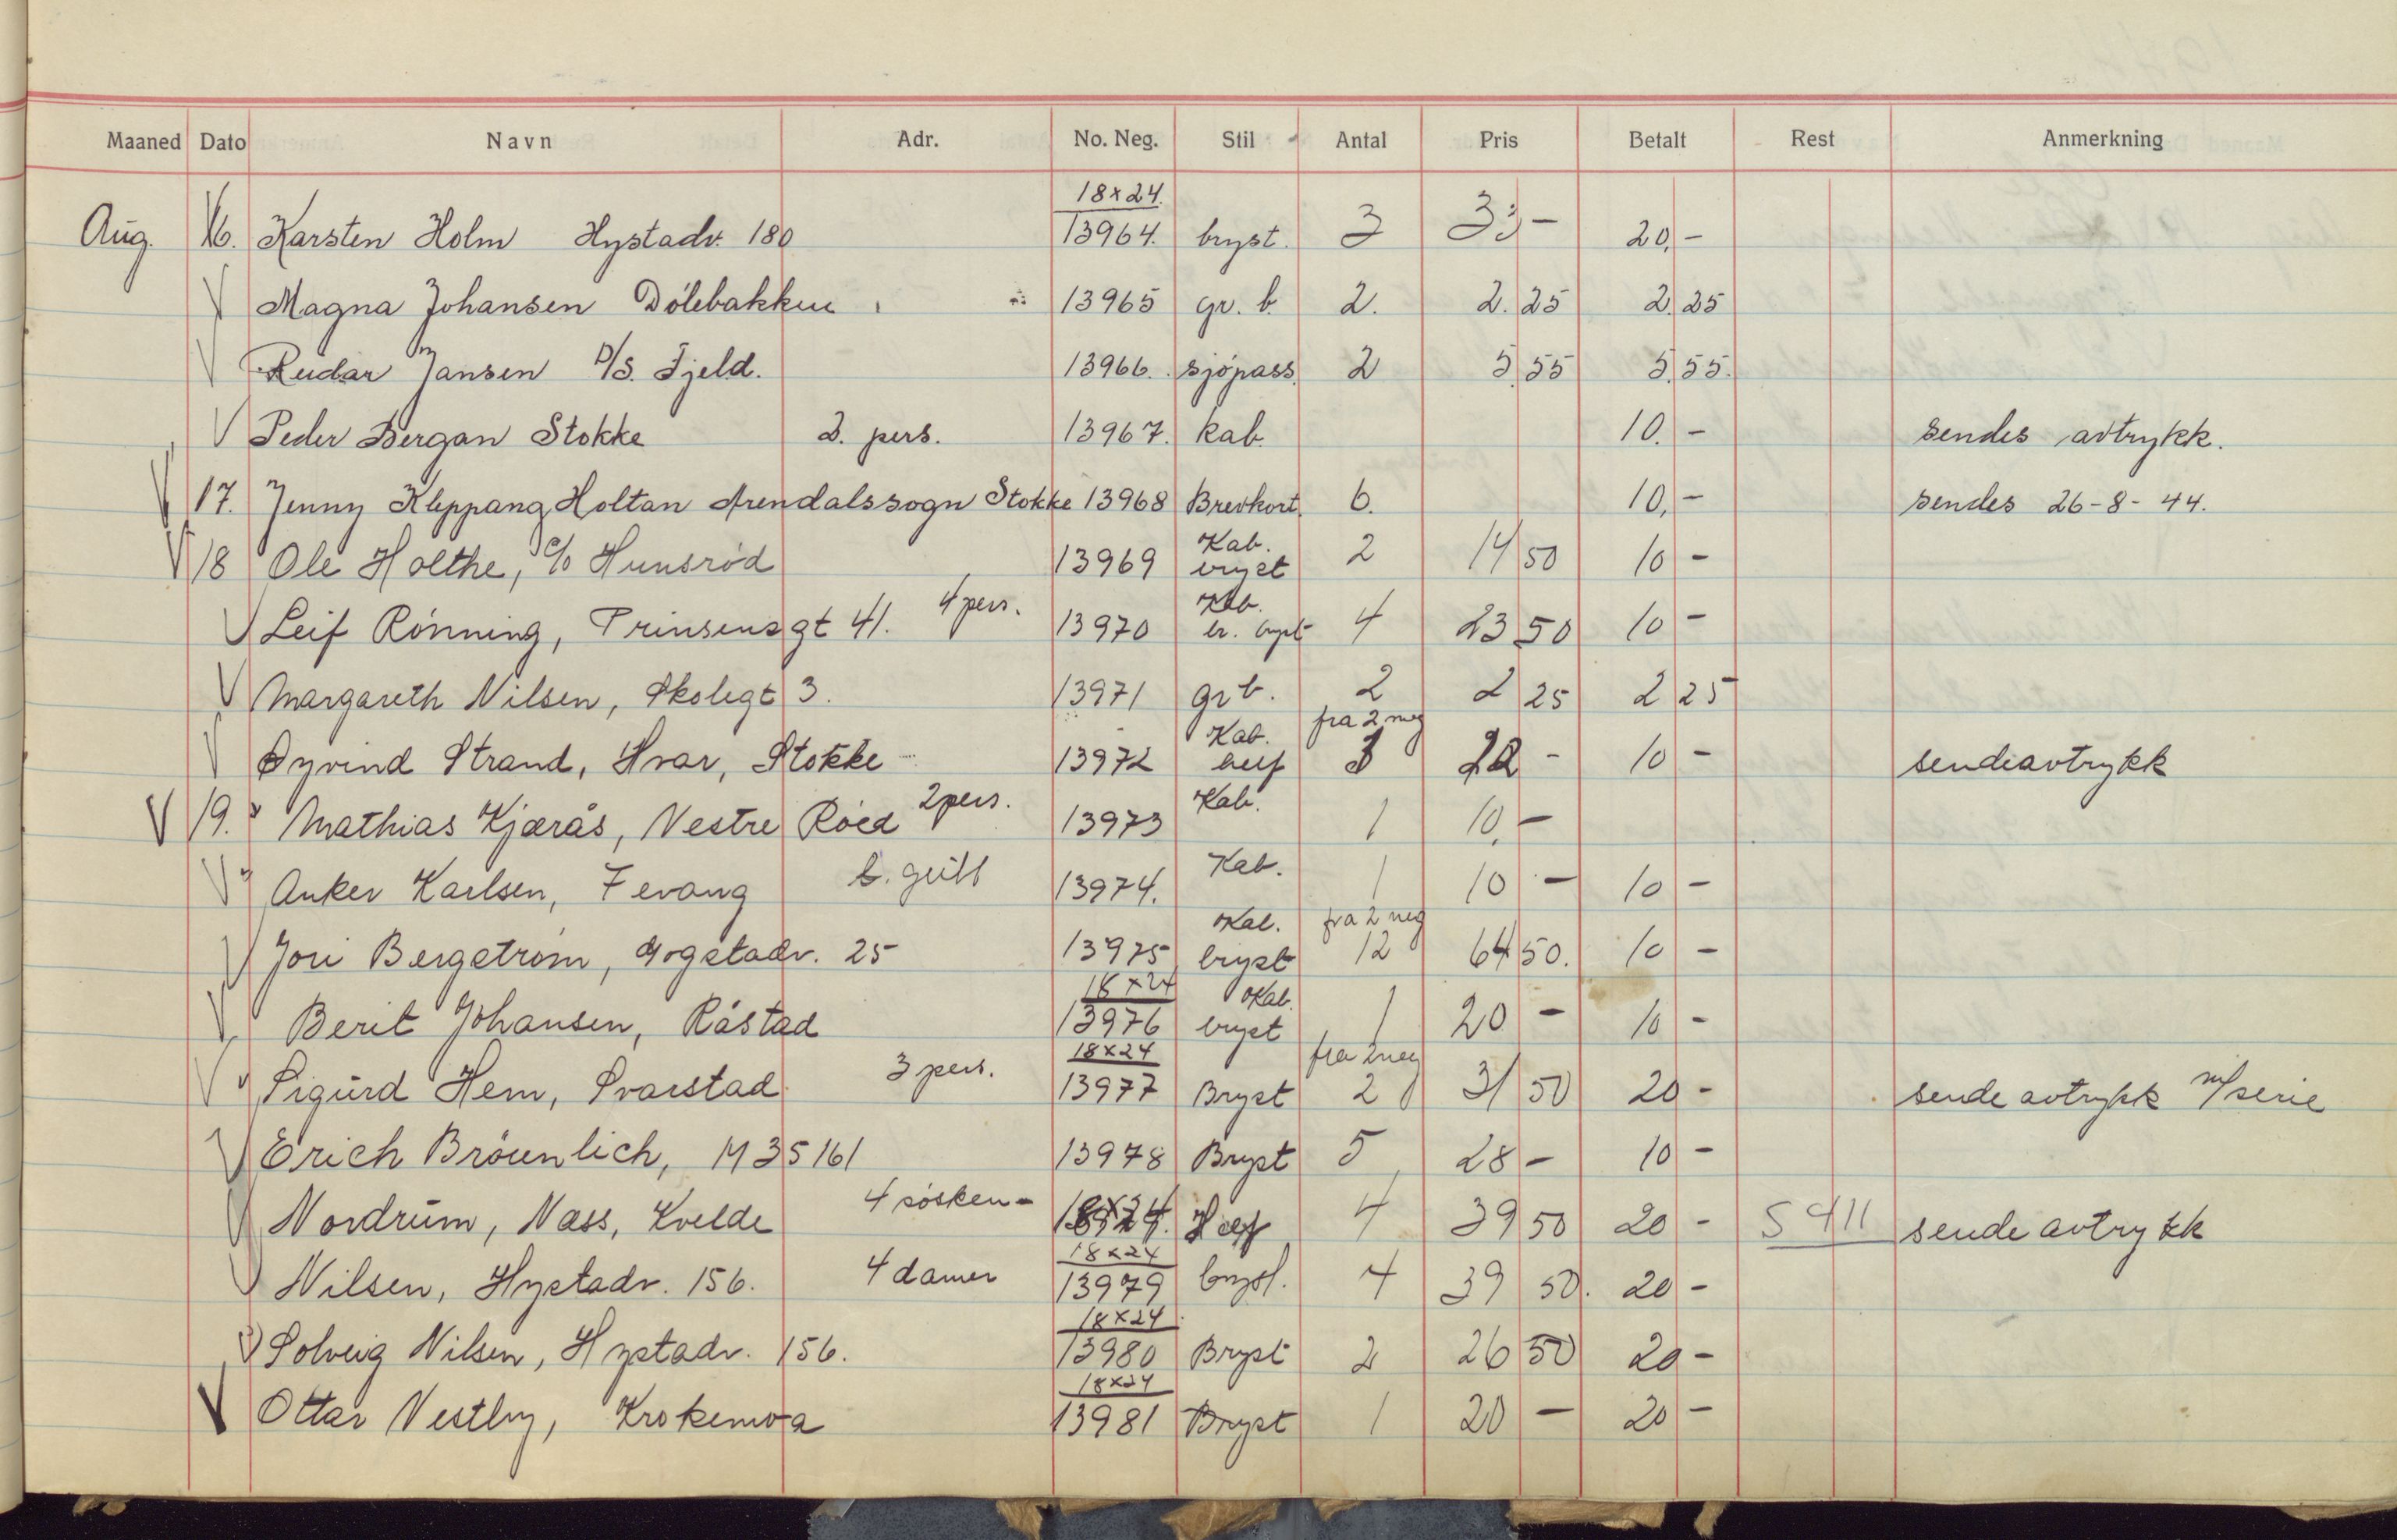 Maaned Dato Navn Adr. No. Neg. Stil Antal Pris Betalt Rest Anmerkning
18x24.
Aug. 16. Karsten Holm Hystadv. 180 13964. bryst. 3 33,- 20,-
Magna Johansen Dölebakken 13965 gr. b. 2. 2.25 2.25
Reidar Jansen D/S. Fjeld. 13966. sjöpass. 2 5,55 5,55.
Peder Bergan Stokke 2. pers. 13967. kab. 10.- sendes avtrykk.
17. Jenny Kleppang Holtan Arendalssogn Stokke 13968 Brevkort. 6. 10,- sendes 26-8-44.
Kab.
18 Ole Holthe, c/o Hunsröd 13969 bryst 2 14 50 10 -
4 pers. Kab.
Leif Rönning, Prinsensgt 41. 13970 br. bryst 4 23 50 10 -
Margareth Nilsen, Skolegt 3. 13971 gr b. 2 2 25 2 25
Kab. fra 2 neg
Øyvind Strand, Hvar, Stokke 13972 helf 3 22 - 10 - sende avtrykk
2 pers. Kab.
19. Mathias Kjærås, Vestre Röed 13973 1 10,-
b. gutt Kab.
Anker Karlsen, Fevang 13974. 1 10 - 10 -
Kab. fra 2 neg
Jon Bergström, Gogstadv. 25 13975 bryst 12 64 50. 10 -
18x24 Kab.
Berit Johansen, Råstad 13976 bryst 1 20 - 10 -
3 pers. 18x24 fra 2 neg
Sigurd Hem, Svarstad 13977 Bryst 2 31 50 20 - sende avtrykk m/serie
Erich Bröunlich, M 35161 13978 Bryst 5 28 - 10 -
4 sösken- 18x24
Nordrum, Næss, Kvelde Helf 4 39 50 20 - S 411 sende avtrykk
4 damer 18x24
Nilsen, Hystadv. 156. 13979 bryst. 4 39 50. 20 -
18x24
Solveig Nilsen, Hystadv. 156. 13980 Bryst 2 26 50 20 -
18x24
Ottar Vestby, Krokemoa 13981 Bryst 1 20 - 20 -